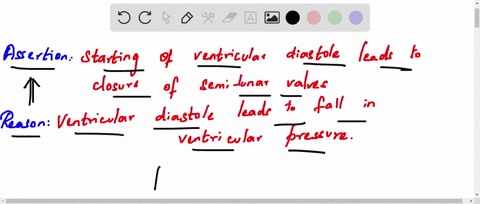 Assertion: Starting of ventricular diastole leads to
closure of semilunar valves
Reason: Ventricular diastole leads to fall in
ventricular pressure.